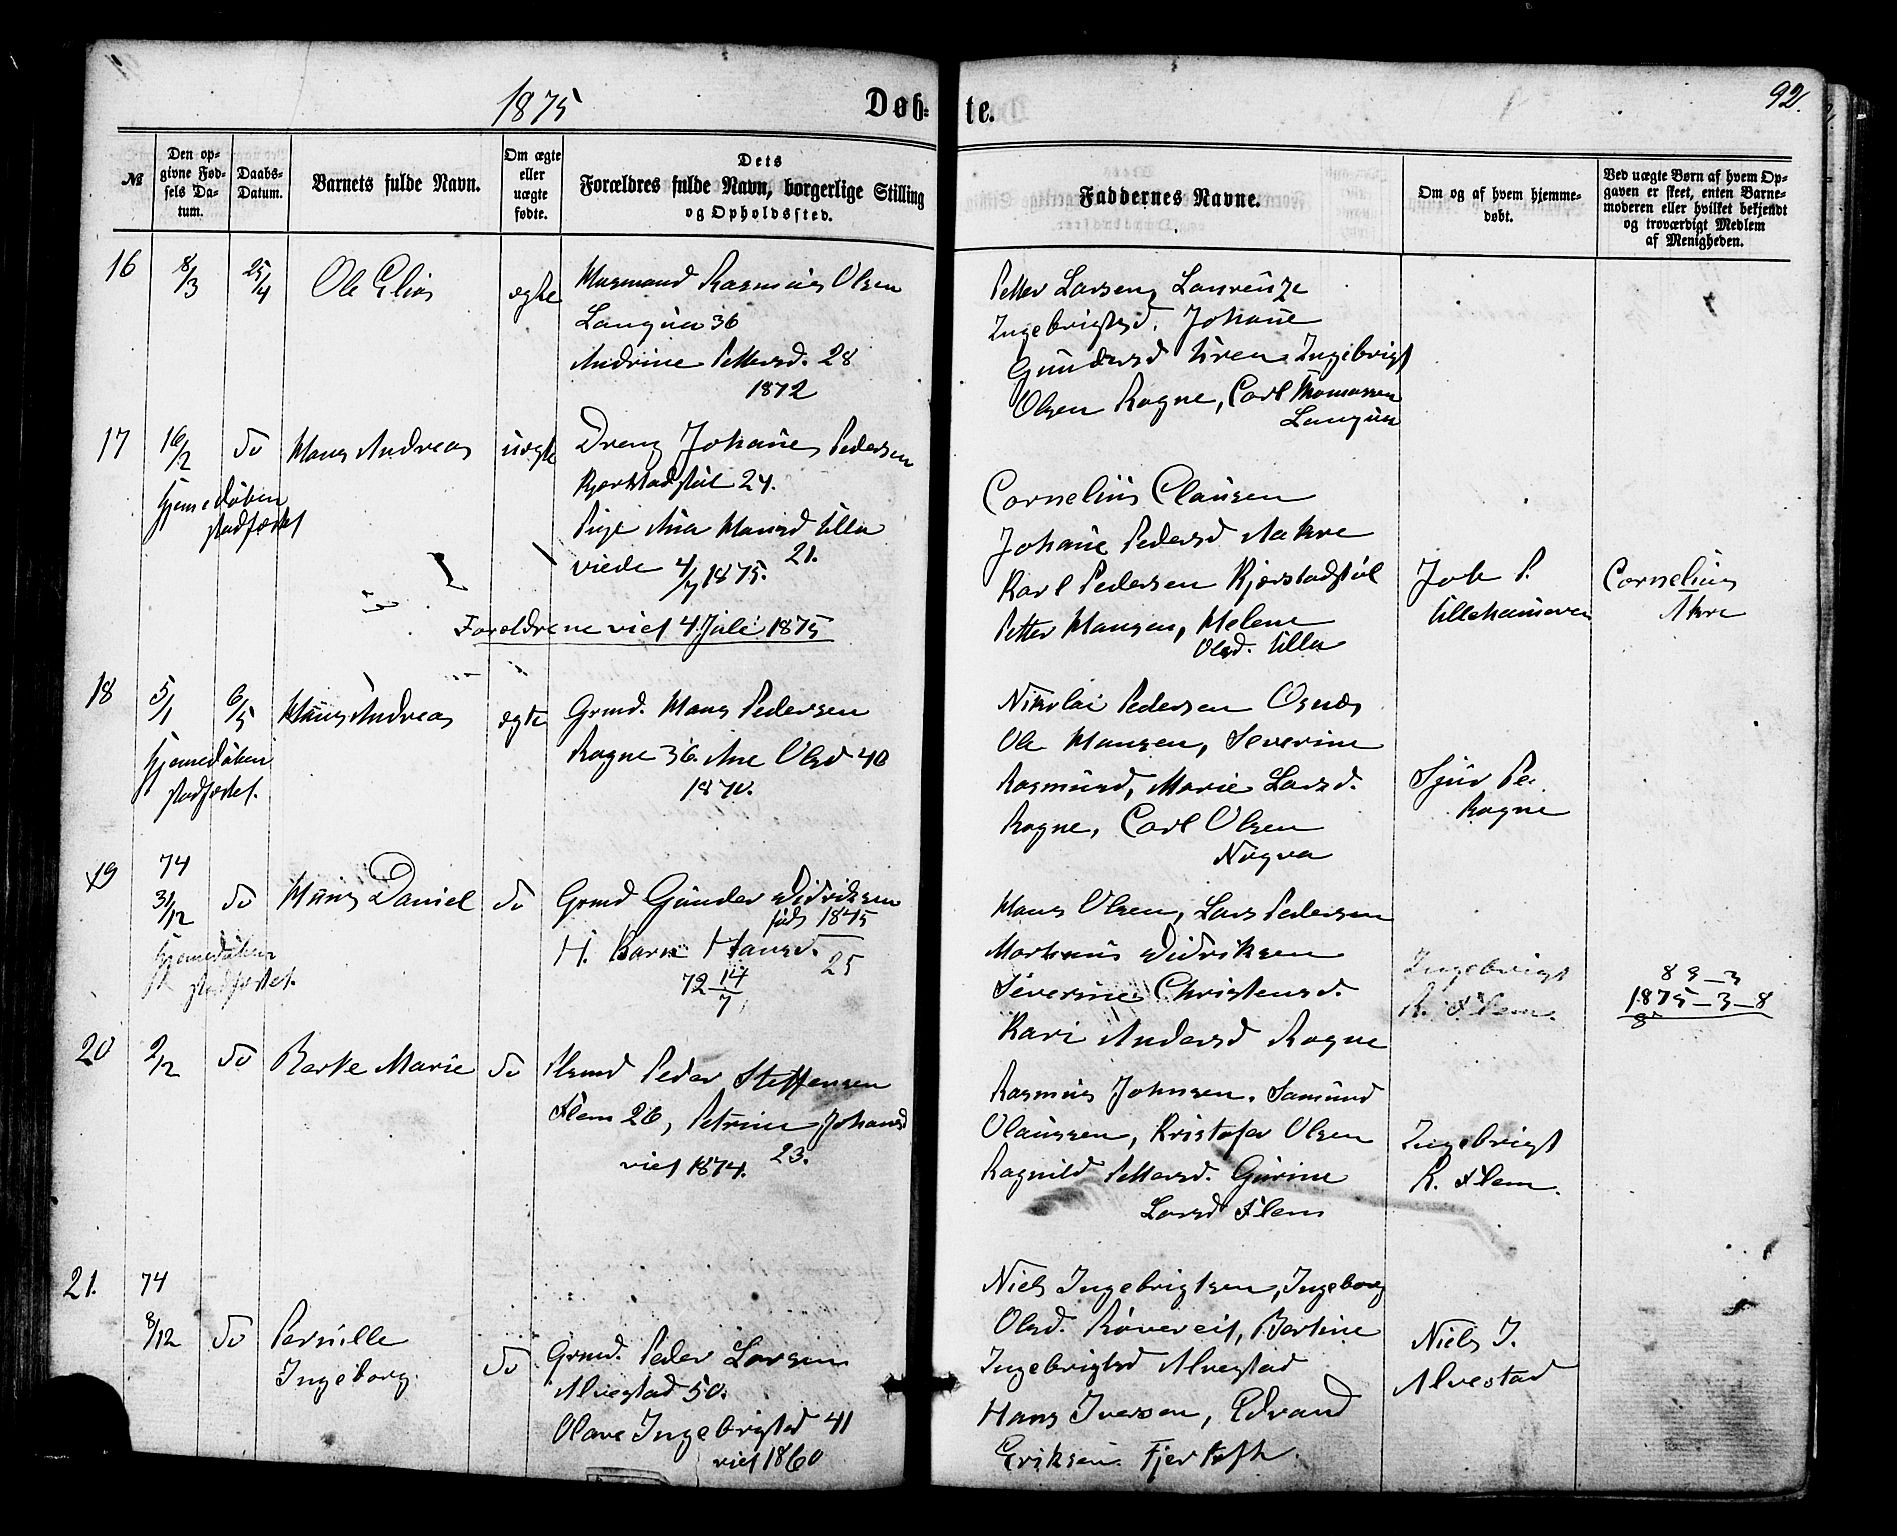 1875
Døb-
te.
92.
№
Den op-
givne Fød-
sels Da-
tum.
Daabs-
Datum.
Barnets fulde Navn.
Om ægte
eller
uægte
fødte.
Dets
Forældres fulde Navn, borgerlige Stilling
og Opholdssted.
Faddernes Navne.
Om og af hvem hjemme-
døbt.
Ved uægte Børn af hvem Op-
gaven er skeet, enten Barne-
moderen eller hvilket bekjendt
og troværdigt Medlem
af Menigheden.
16
8/3
25/4
Ole Elias
ægte
Husmand Rasmus Olsen
Langua 36
Andrine Pettersd. 28
1872
Petter Larsen, Laurentze
Ingebrigtsd. Johane
Gundersd Uren, Ingebrigt
Olsen Rogne, Carl Thomassen
Langua
17
16/2
do
Hans Andreas
uægte
hjemedøben
stadfæstet
Dreng Johanes Pedersen
Kjærstadstøl 24.
Pige Ana Hansd Ulla
21.
viede 4/7 1875.
Forældrene viet 4 Juli 1875
Cornelius Clausen
Johane Pedersd Aakre
Karl Pedersen Kjærstadstøl
Petter Hansen, Helene
Olsd. Ulla
Job P.
Ullehameren
Cornelius
Akre
18
5/1
6/5
Hans Andreas
ægte
hjemedøben
stadfæstet.
Grmd. Hans Pedersen
Rogne 36. Ane Olsd 40
1870.
Nikolai Pedersen Osnæs
Ole Hansen, Severine
Rasmusd, Marie Larsd.
Rogne, Carl Olsen
Nogva
Sjur Pe.
Rogne
19
74
31/12
do
Hans Daniel
do
hjemedøben
stadfæstet.
Grmd Gunder Didriksen
fød 1845
H. Karn Hansd.
25
72 14/7
Hans Olsen, Lars Pedersen
Martinus Didriksen
Severine Christensd.
Kari Andersd Rogne
Ingebrigt
R. Flem.
8 9 - 3
1875 - 3 - 8
8
20
2/2
do
Berte Marie
do
Husmd Peder Steffensen
Flem 26, Petrine Johansd
23.
viet 1874.
Rasmus Johnsen, Samund
Olaussen, Kristofer Olsen
Ragnild Pettersd. Gurine
Larsd Flem
Ingebrigt
R. Flem.
21.
74
8/12
do
Pernille
Ingeborg.
do
Grmd. Peder Larsen
Alvestad 50.
Olave Ingebrigtsd 41
viet 1860
Niels Ingebrigtsen, Ingeborg
Olsd. Røvereit, Bertine
Ingebrigtsd Alvestad
Hans Iversen, Edvard
Eriksen Fjertoft.
Niels I.
Alvestad